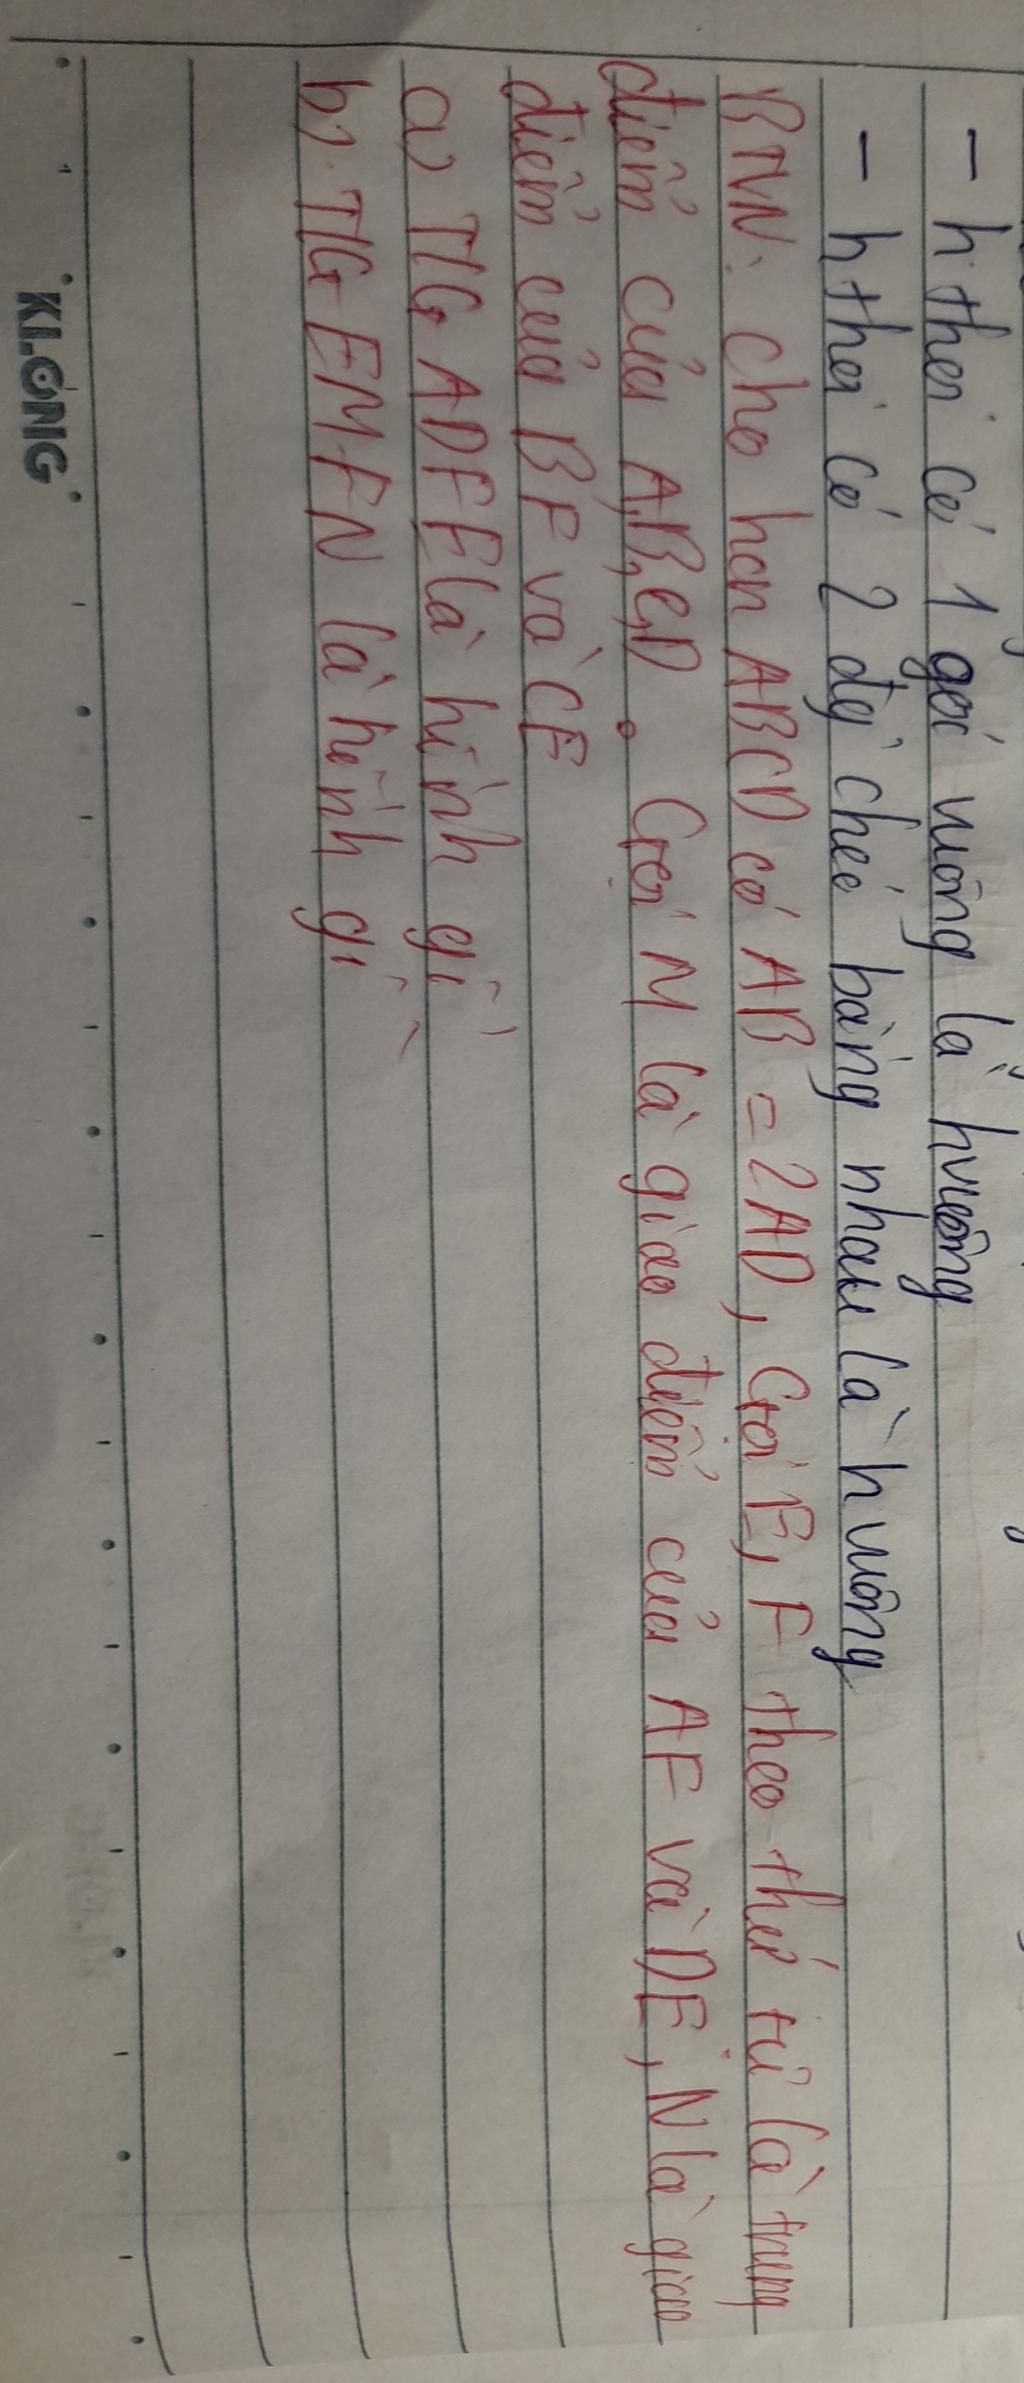 - h thoi có 1 góc vuông là hvuông
- h thoi có 2 đg chéo bằng nhau là h vuông
BTVN: cho hcn ABCD có AB = 2AD, Gọi E, F theo thứ tự là trung
điểm của AB, CD. Gọi M là giao điểm của AF và DE, N là giao
điểm của BF và CE
a) TG ADFE là hình gì
b) TG EMFN là hình gì
KLONG